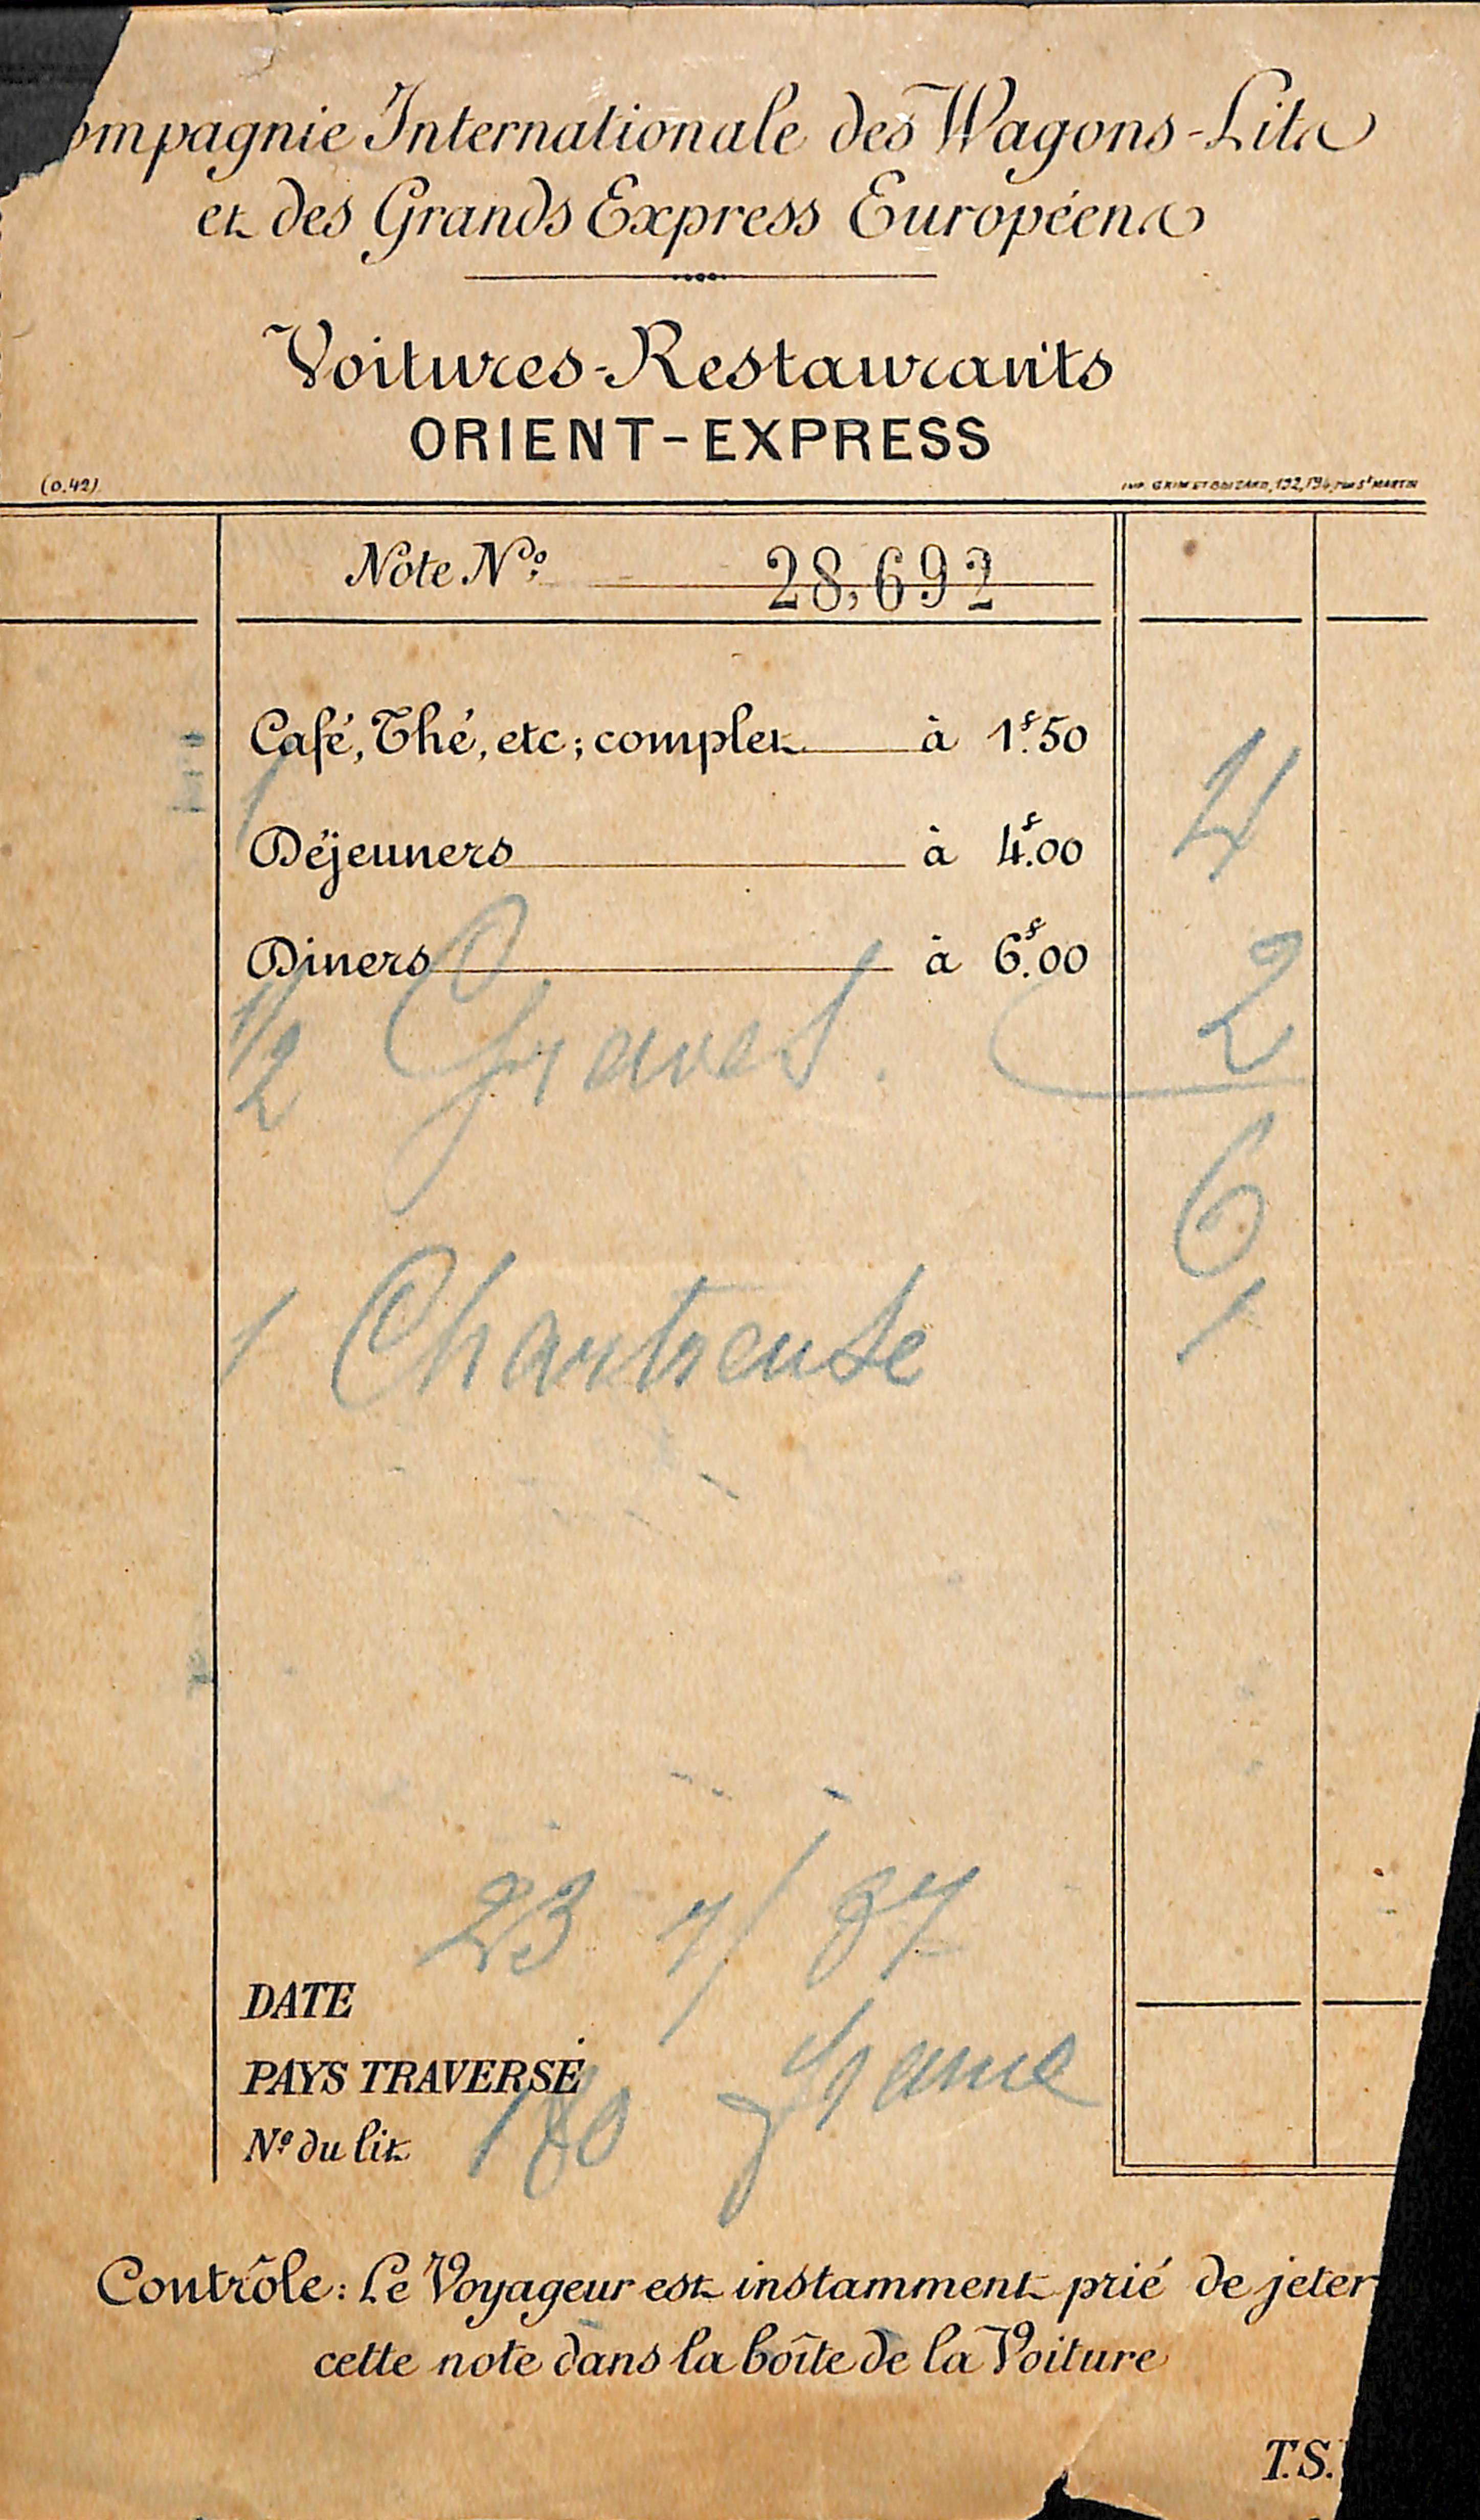 ompagnie Internationale des Wagons-Lits
et des Grands Express Européens
Voitures-Restaurants
ORIENT-EXPRESS
(0.42)
192, 194, rue St MARTIN
Note No. 28,692
Café, Thé, etc; complet à 1f.50
1 Déjeuners à 4f.00 4
Diners à 6f.00
1/2 Graves. 2
6
1 Chartreuse 1
23 7/87
DATE
PAYS TRAVERSÉ France
No du lit 180
Contrôle: Le Voyageur est instamment prié de jeter
cette note dans la boîte de la Voiture
T.S.